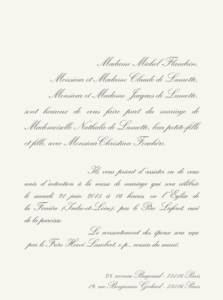 Madame Michel Flandrin,
Monsieur et Madame Claude de Lunette,
Monsieur et Madame Jacques de Lunette,
sont heureux de vous faire part du mariage de
Mademoiselle Nathalie de Lunette, leur petite-fille
et fille, avec Monsieur Christian Fouchère.
Ils vous prient d'assister ou de vous
unir d'intention à la messe de mariage qui sera célébrée
le samedi 21 juin 2013 à 16 heures, en l'Église de
la Ferrière (Indre-et-Loire), par le Père Lefort, curé
de la paroisse.
Le consentement des époux sera reçu
par le Frère Hervé Lambert, o.p., cousin du marié.
28 avenue Bugeaud - 75116 Paris
12, rue Benjamin Godard - 75116 Paris